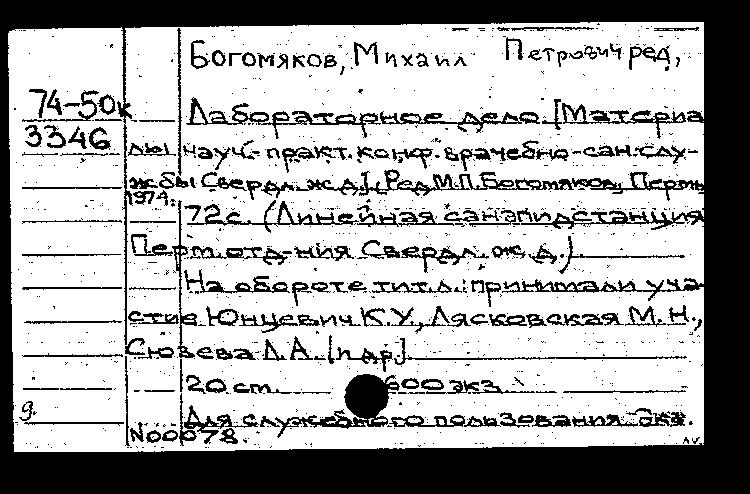 Богомяков, Михаил Петрович ред,
74-50к
Лабораторное дело. [Материа
3346
лы науч.-практ. конф. врачебно-сан. слу-
жбы Свердл. ж.д.]. (Ред. М.П. Богомяков, Пермь
1974.
72с. (Линейная санэпидстанция
Перм. отд-ния Свердл. ж.д.)
На обороте тит.л.: принимали уча-
стие Юнцевич К.У., Лясковская М.Н.,
Сюзева Л.А. [и др].
20 ст. 600 экз.
g.
Для служебного пользования. Экз.
N00078.